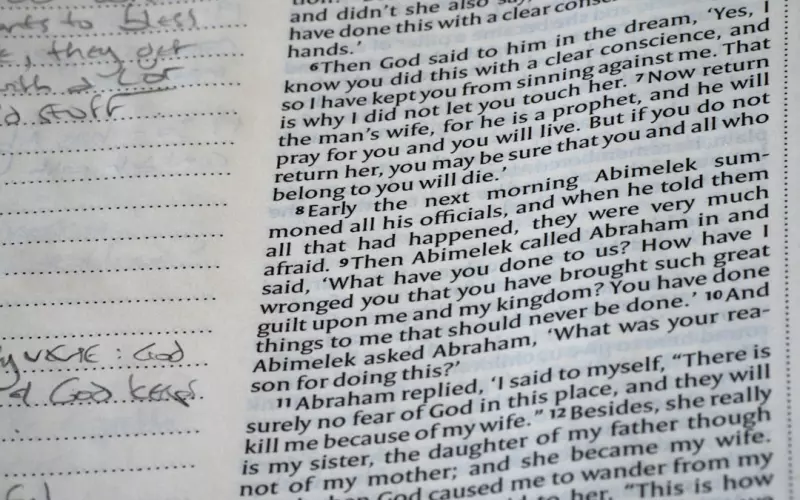 to bless
, they get
stuff
: God
God keeps
and didn't she also
have done this with a clear
hands.'
6Then God said to him in the dream, 'Yes, I
know you did this with a clear conscience, and
so I have kept you from sinning against me. That
is why I did not let you touch her. 7Now return
the man's wife, for he is a prophet, and he will
pray for you and you will live. But if you do not
return her, you may be sure that you and all who
belong to you will die.'
8Early the next morning Abimelek sum-
moned all his officials, and when he told them
all that had happened, they were very much
afraid. 9Then Abimelek called Abraham in and
said, 'What have you done to us? How have I
wronged you that you have brought such great
guilt upon me and my kingdom? You have done
things to me that should never be done.' 10And
Abimelek asked Abraham, 'What was your rea-
son for doing this?'
11Abraham replied, 'I said to myself, "There is
surely no fear of God in this place, and they will
kill me because of my wife." 12Besides, she really
is my sister, the daughter of my father though
not of my mother; and she became my wife.
God caused me to wander from my
her, "This is how